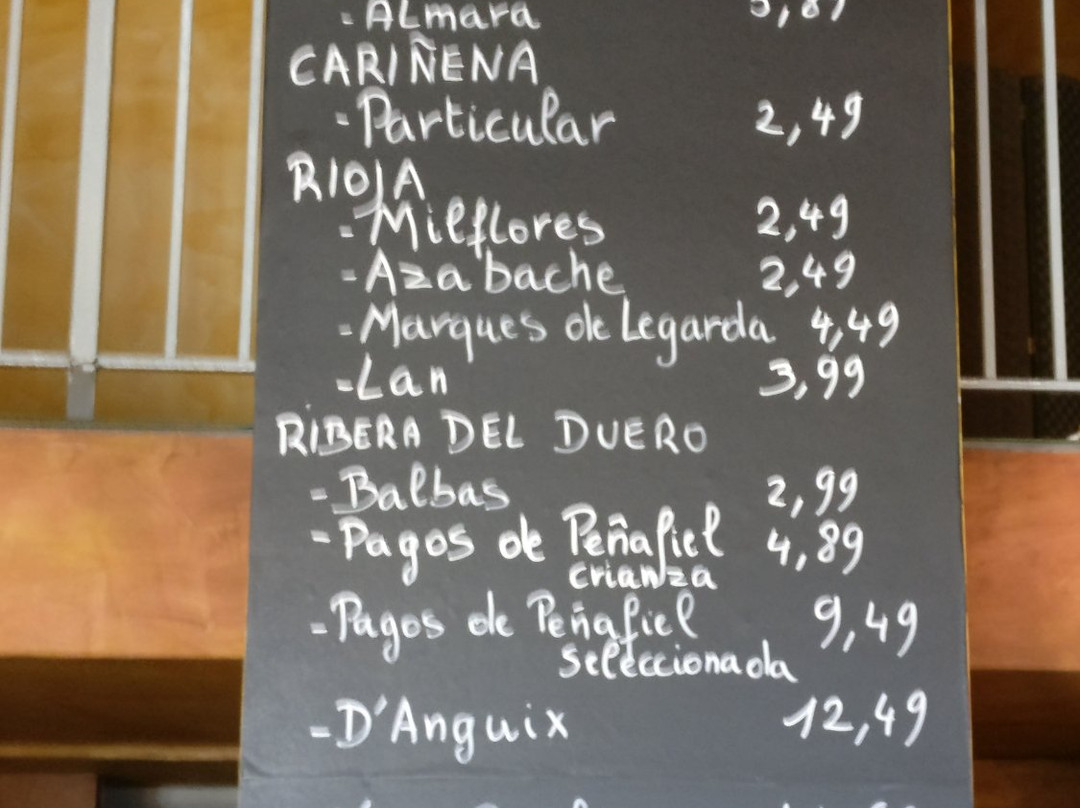 - ALmara 5,89
CARIÑENA
- Particular 2,49
RIOJA
- Milflores 2,49
- Azabache 2,49
- Marques de Legarda 4,49
- Lan 3,99
RIBERA DEL DUERO
- Balbas 2,99
- Pagos de Peñafiel 4,89
crianza
- Pagos de Peñafiel 9,49
seleccionada
- D'Anguix 12,49